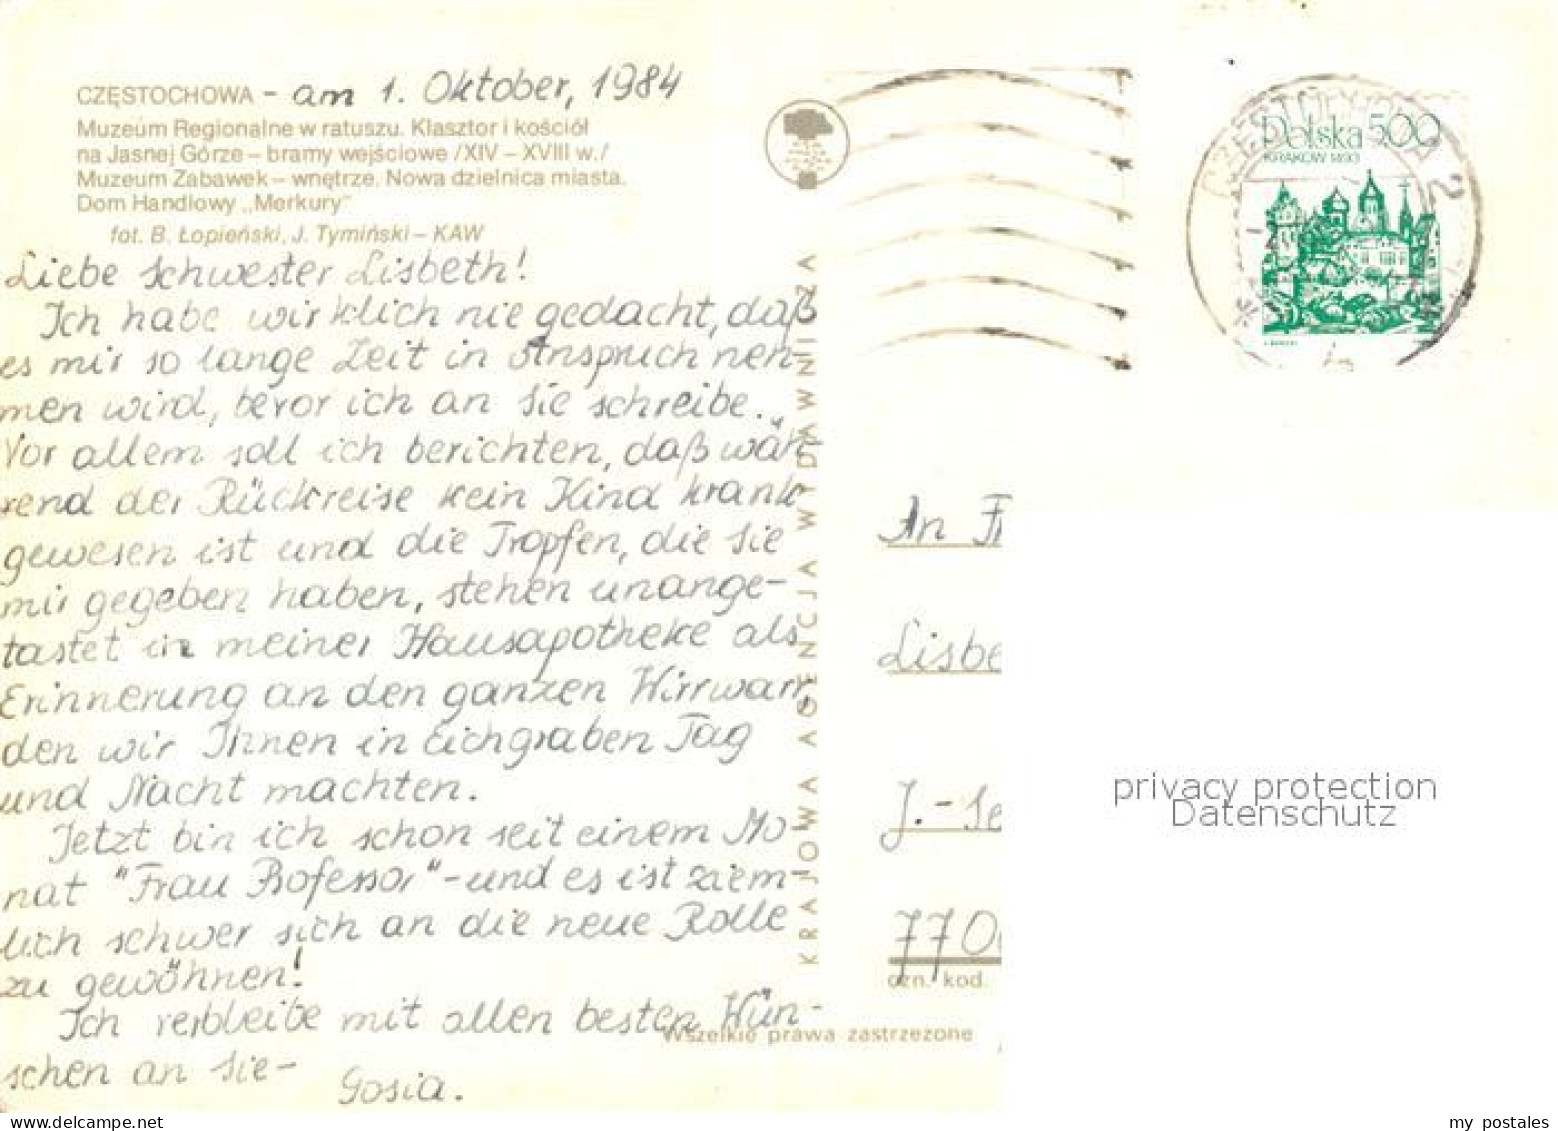 CZĘSTOCHOWA - am 1. Oktober, 1984
Muzeum Regionalne w ratuszu. Klasztor i kościół
na Jasnej Górze – bramy wejściowe /XIV – XVIII w./
Muzeum Zabawek – wnętrze. Nowa dzielnica miasta.
Dom Handlowy „Merkury"
fot. B. Łopieński, J. Tymiński – KAW
Liebe Schwester Lisbeth!
Ich habe wirklich nie gedacht, daß
es mir so lange Zeit in Anspruch nen-
men wird, bevor ich an Sie schreibe.
Vor allem soll ich berichten, daß wäh-
rend der Rückreise kein Kind krank
gewesen ist und die Tropfen, die Sie
mir gegeben haben, stehen unange-
tastet in meiner Hausapotheke als
Erinnerung an den ganzen Wirrwarr,
den wir Ihnen in Eichgraben Tag
und Nacht machten.
Jetzt bin ich schon seit einem Mo-
nat "Frau Professor" - und es ist ziem-
lich schwer sich an die neue Rolle
zu gewöhnen!
Ich verbleibe mit allen besten Wün-
schen an Sie-
Gosia.
KRAJOWA AGENCJA WYDAWNICZA
Wszelkie prawa zastrzeżone
Polska 500
KRAKÓW 1493
CZĘSTOCHOWA 2
An Fr
Lisbe
J.-Se
770
ozn. kod.
privacy protection
Datenschutz
my postales